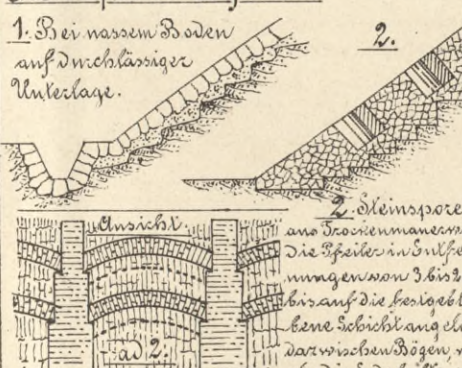 1. Bei nassem Boden
auf durchlässiger
Unterlage.
2.
Ansicht
ad 2.
2. Steinspore
aus Trockenmauerw
die Pfeiler in Entfe
nungen von 3 bis
bis auf die festgebl
bene Schicht angel
dazwischen Bögen,